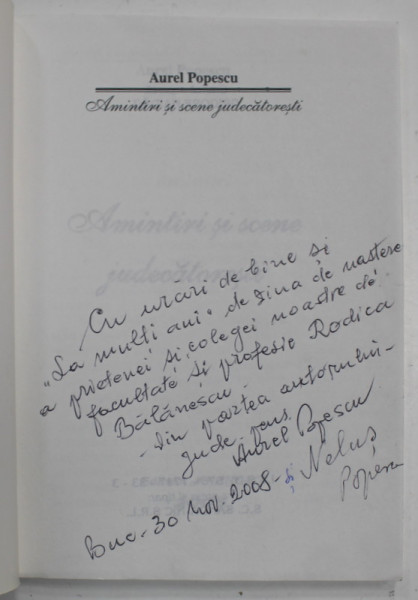 Aurel Popescu
Amintiri și scene judecătorești
Amintiri și scene
Cu urări de bine și
"La mulți ani" de ziua de naștere
a prietenei și colegei noastre de
facultate și profesie Rodica
Bălănescu -
- din partea autorului -
jude pens.
Aurel Popescu
Buc. 30 Nov. 2008 - și Neluș
Popescu